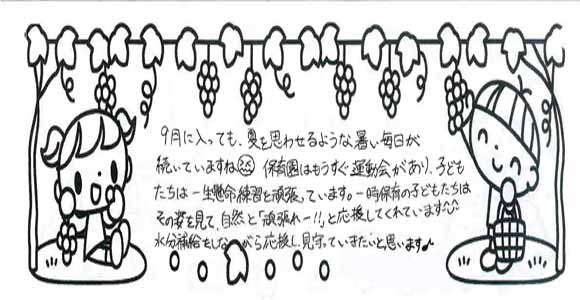 9月に入っても、夏を思わせるような暑い毎日が
続いていますね 保育園はもうすぐ運動会があり、子ども
たちは一生懸命練習を頑張っています。一時保育の子どもたちは
その姿を見て、自然と「頑張れー!!」と応援してくれています^^
水分補給をしながら応援し、見守っていきたいと思います♪